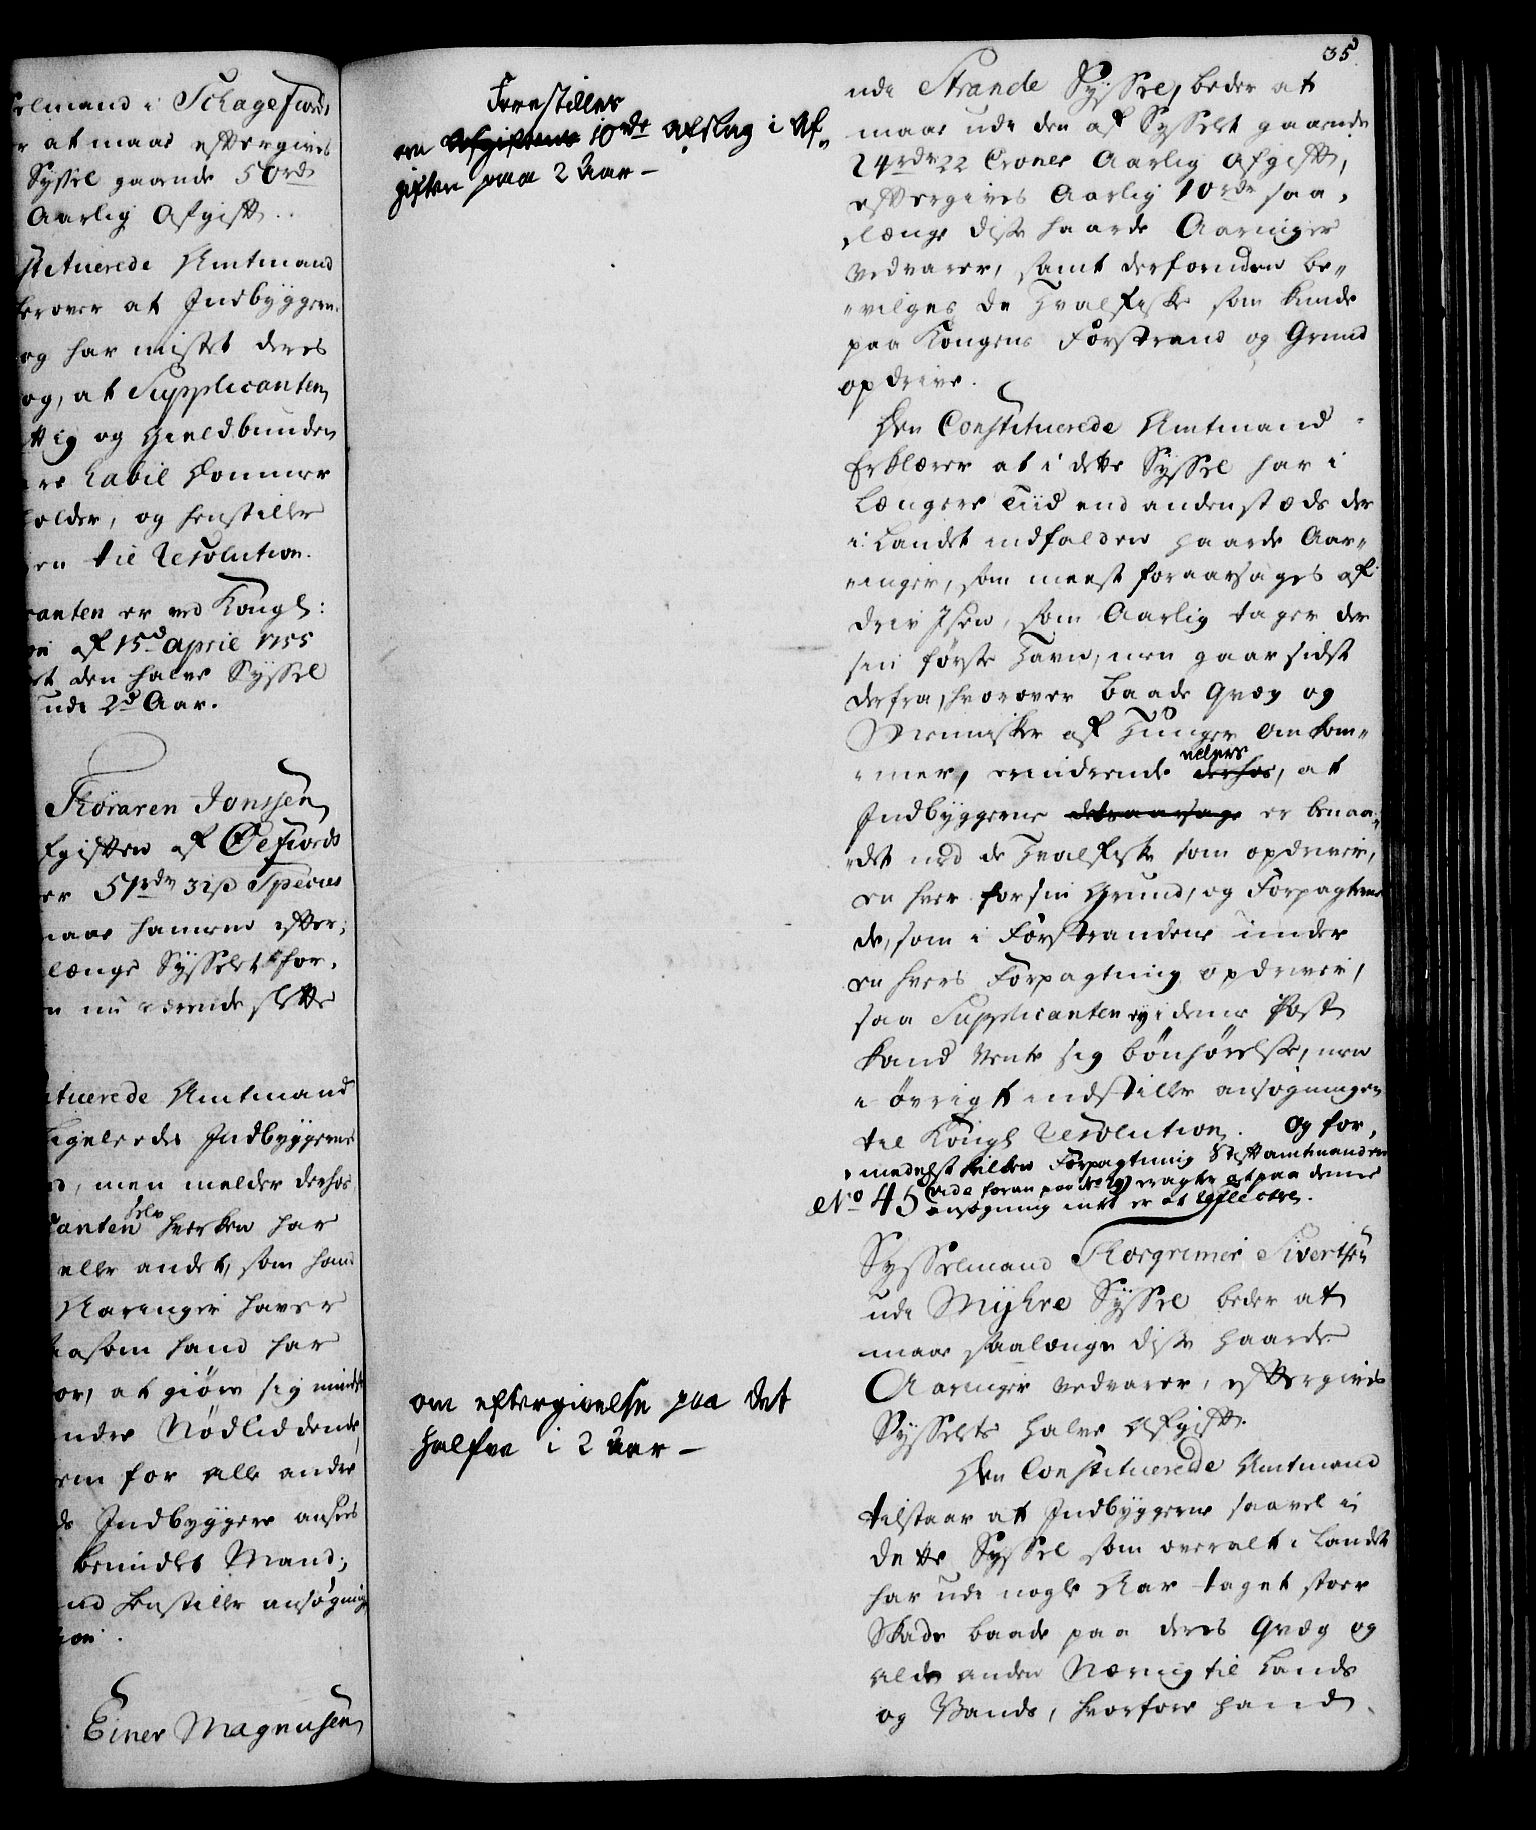 elmand i Schagefiord,
r at maae eftergives
Syssel gaaende 50 rd
Aarlig Afgift.
stituerede Amtmand
rover at Indbyggern.
og har mistet deres
og, at Supplicanten
ttig og Gieldbunden
re Labil Dommer
holder, og henstiller
en til Resolution.
canten er ved Kongl:
on af 15d April 1755
et den halve Syssel
udi 2d Aar.
Thoraren Jonssen
fgiften af Øefiords
er 51 rdr 31 s Species
maae hannem efter,
længe Sysselet for,
n nu værende slette
ituerede Amtmand
ligeledes Indbyggerne
d, men melder derhos
canten selv hverken har
eller andet, som hand
Aaringer haver
saasom hand har
or, at giøre sig mindst
ndre Nødlidende
em for alle andre
ds Indbyggere ansees
bemidlet Mand,
nd henstiller ansøgning
ion.
Einer Magnusen
Forestilles
om Afgiftens 10 rdr afslag i Af„
giften paa 2 Aar –
om eftergivelse paa det
halfve i 2 Aar –
35
udi Strande Syssel, beder at
maae udi den af Sysselet gaaende
24 rdr 22 Croner Aarlig Afgift,
eftergives Aarlig 10 rdr saa„
„længe disse haarde Aaringer
vedvarer, samt derforuden be„
„vilges de Hvalfiske som kunde
paa Kongens Forstrand og Grund
opdrive.
Den Constituerede Amtmand
Erklærer at i dette Syssel har i
Længere Tiid end andenstæds der
i Landet indfalden haarde Aar„
„inger, som meest foraarsages af
Driv Isen, som Aarlig tager der
sin første Havn, men gaar sidst
derfra, hvorover baade Qvæg og
Mennisker af Hunger omkom„
„mer, erindrende ellers derhos, at
Indbyggerne er benaa„
„det med de Hvalfiske som opdriver,
en hver for sin Grund, og Forpagterne
de, som i Forstrandene under
en hvers Forpagtning opdriver,
saa Supplicanten ey i denne Post
kand vente sig bønhørelse, men
i øvrigt indstiller ansøgningen
til Kongl Resolution. Og for„
„medelst Forpagtning Stiftamtmanden
(vide foran paa No 29) eragter at paa denne
No 45 ansøgning intet er at reflectere.
Sysselmand Thorgrimer Sivertsen
udi Myhre Syssel beder at
maae saalænge disse haarde
Aaringer vedvarer, eftergives
Sysselets halve Afgift.
Den Constituerede Amtmand
tilstaar at Indbyggerne saavel i
dette Syssel som overalt i Landet
har udi nogle Aar taget stoer
Skade baade paa deres Qvæg og
alde anden Næring til Lands
og Vands, hvorfore hand